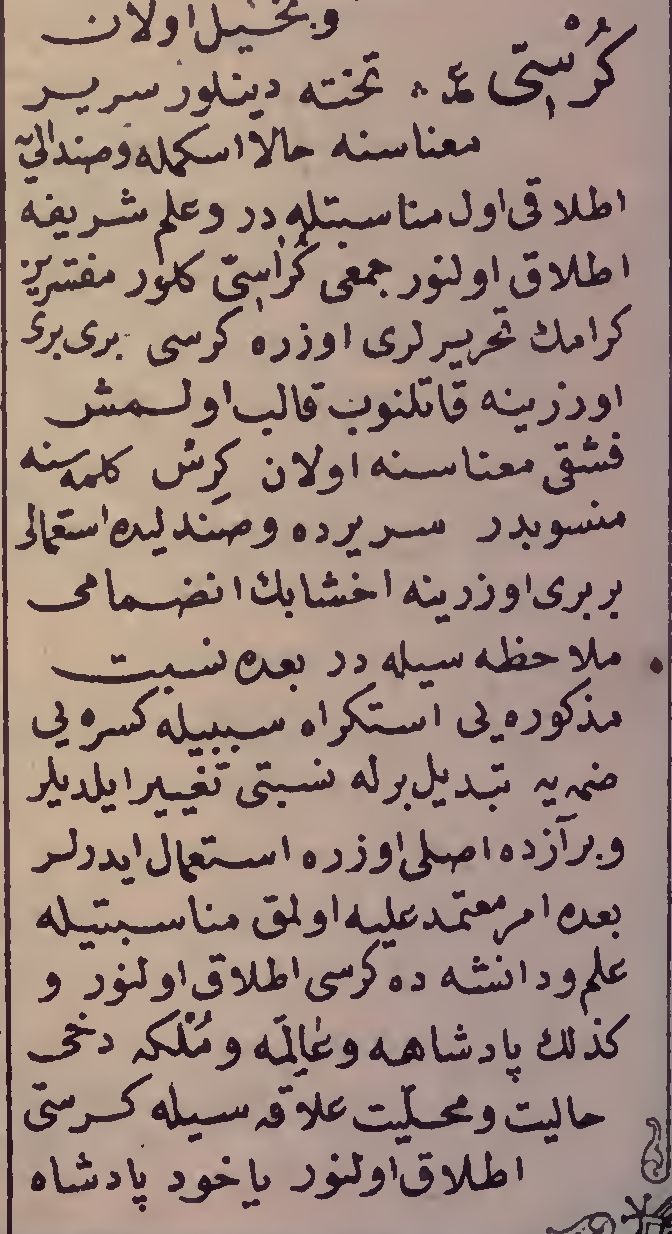 و بخیل اولان
كُرْسِیّ ع ٨ تخته دینلور سریر
معناسنه حالا اسکمله و صندالیّه
اطلاقی اول مناسبتله در و علم شریفه
اطلاق اولنور جمعی كُرَاسِیّ كلور مفسّرین
كرامك تحریرلری اوزره كرسی بری بری
اوزرینه قاتلنوب قالب اولمش
فشقی معناسنه اولان كِرْس كلمه سنه
منسوبدر سریرده و صندلیده استعمالی
بربری اوزرینه اخشابك انضمامی
ملاحظه سیله در بعده نسبت
مذكوره یی استكراه سببیله كسره یی
ضمه یه تبدیل برله نسبتی تغییر ایلدیلر
و بر آزده اصلی اوزره استعمال ایدرلر
بعده امر معتمد علیه اولمق مناسبتیله
علم و دانشه ده كرسی اطلاق اولنور و
كذلك پادشاهه و عَالِمَه و مُلْكه دخی
حالیت و محلّیت علاقه سیله كرسیّ
اطلاق اولنور یاخود پادشاه